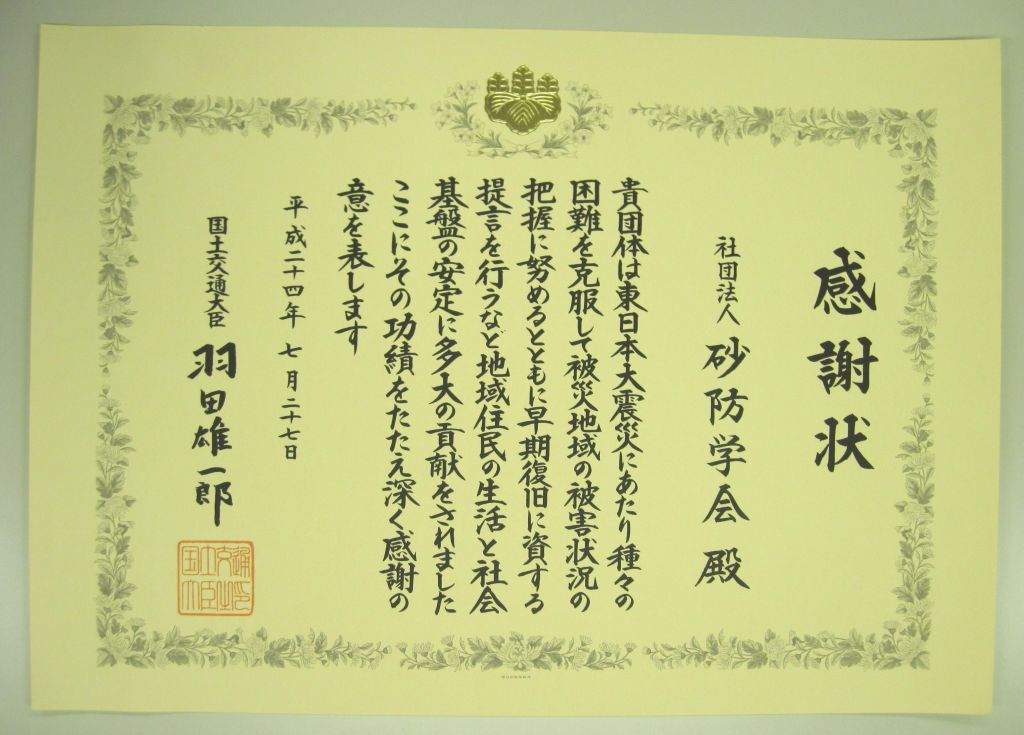 感謝状
社団法人 砂防学会 殿
貴団体は東日本大震災にあたり種々の
困難を克服して被災地域の被害状況の
把握に努めるとともに早期復旧に資する
提言を行うなど地域住民の生活と社会
基盤の安定に多大の貢献をされました
ここにその功績をたたえ深く感謝の
意を表します
平成二十四年 七月二十七日
国土交通大臣 羽田雄一郎
国土交通大臣之印